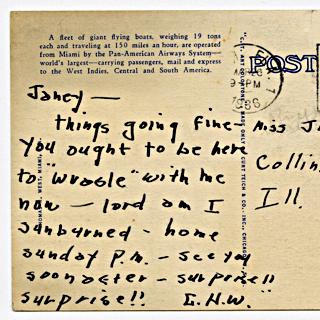 A fleet of giant flying boats, weighing 19 tons
each and traveling at 150 miles an hour, are operated
from Miami by the Pan-American Airways System—
world's largest—carrying passengers, mail and express
to the West Indies, Central and South America.
POST
9 PM
1936
Janey —
things going fine—
you ought to be here
to "wrogle" with me
now — lord am I
sunburned — home
sunday P.M. — see you
soon after — surprise!!
surprise!! E.H.W.
Miss J
Collin
Ill.
MADE ONLY BY CURT TEICH & CO., INC., CHICAGO
WEST, MIAMI,